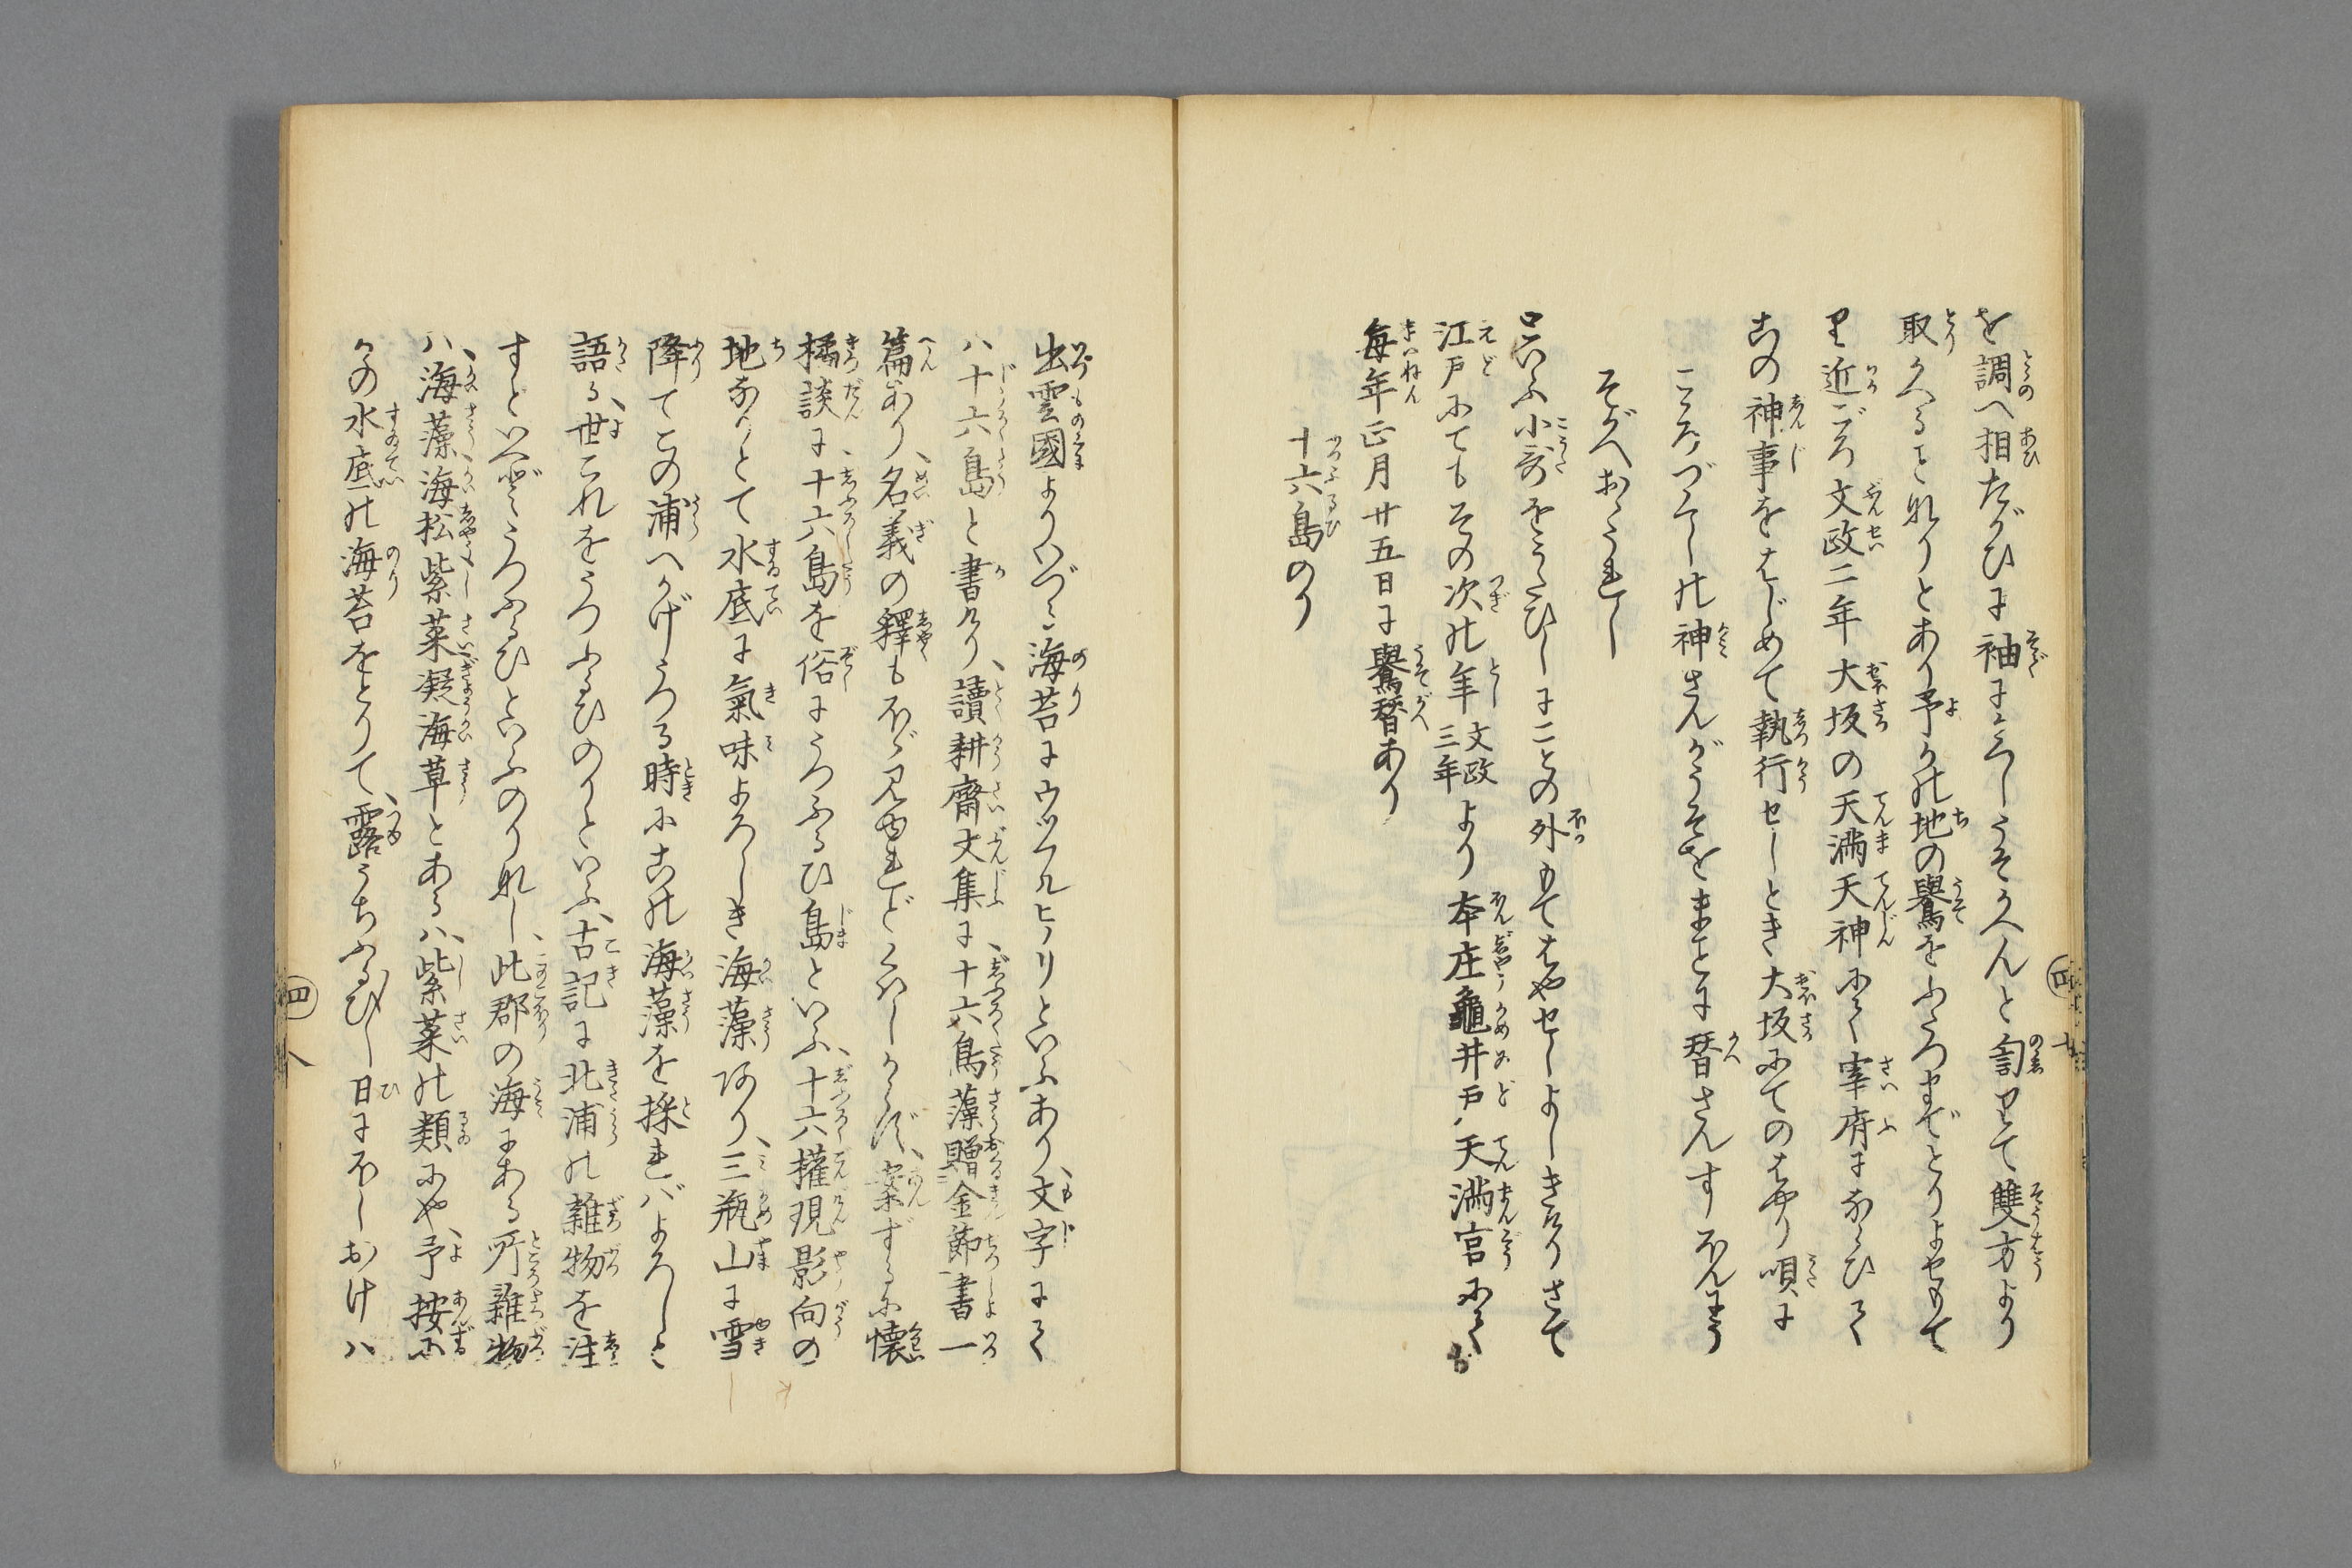 を調へ相たがひに袖にかくしうそかへんと訇りて雙方より
取かへること例なりとあり予かの地の鷽をふたつまでとりよせもて
り近ごろ文政二年大坂の天満天神にて宰府にならひて
あの神事をはじめて執行せしとき大坂にてのはやり唄に
こころづくしの神さんがうそをまことに替さんすほんにう
そがへおうれし
とふ小哥をうたひしにことの外もてはやせしよしきけりさて
江戸にてもその次の年文政三年より本庄龜井戸天満宮にてお
毎年正月廿五日に鷽替あり
十六島のり
出雲國よりいづる海苔にウツフルヒノリといふあり、文字にて
ハ十六島と書けり、讀耕齋文集に、十六島藻贈金節書一
篇あり、名義の釋もほゞ見ゆれどくはしからず、案ずるに懐
橘談に、十六島を俗にうつふるひ島といふ、十六權現影向の
地なりとて水底に氣味よろしき海藻あり、三瓶山に雪
降てこの浦へかげうつる時にあの海藻を採ればよろしと
語る、世これをうつふるひのりといふ、古記に北浦の雜物を注
すといへどもうつふるひといふのりなし、此郡の海にある所雜物
ハ、海藻海松紫菜凝海草とあるハ、紫菜の類にや、予按に
かの水底の海苔をとりて、露うちふるひし日にほしおけハ
四 八